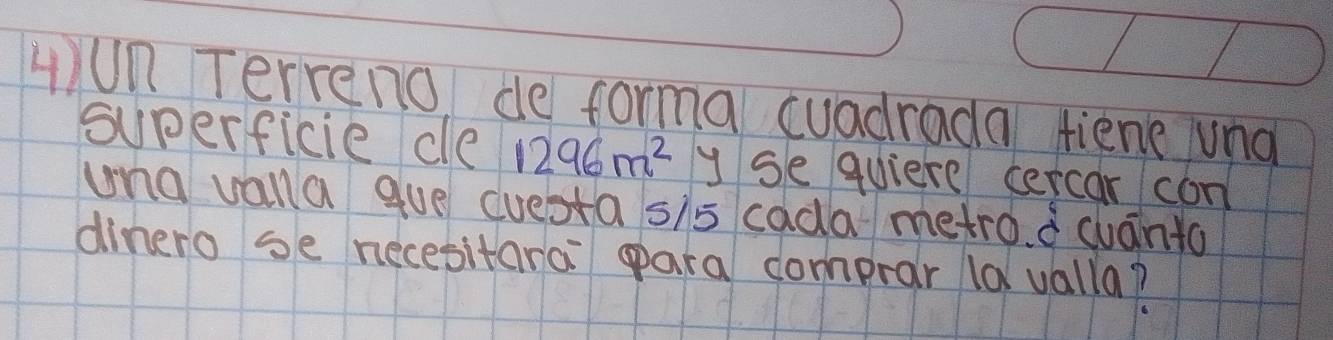 4) Un Terreno de forma cuadrada tiene una
superficie de 1296 m² y se quiere cercar con
una valla que cuesta s/5 cada metro. ¿cuánto
dinero se necesitará para comprar la valla?